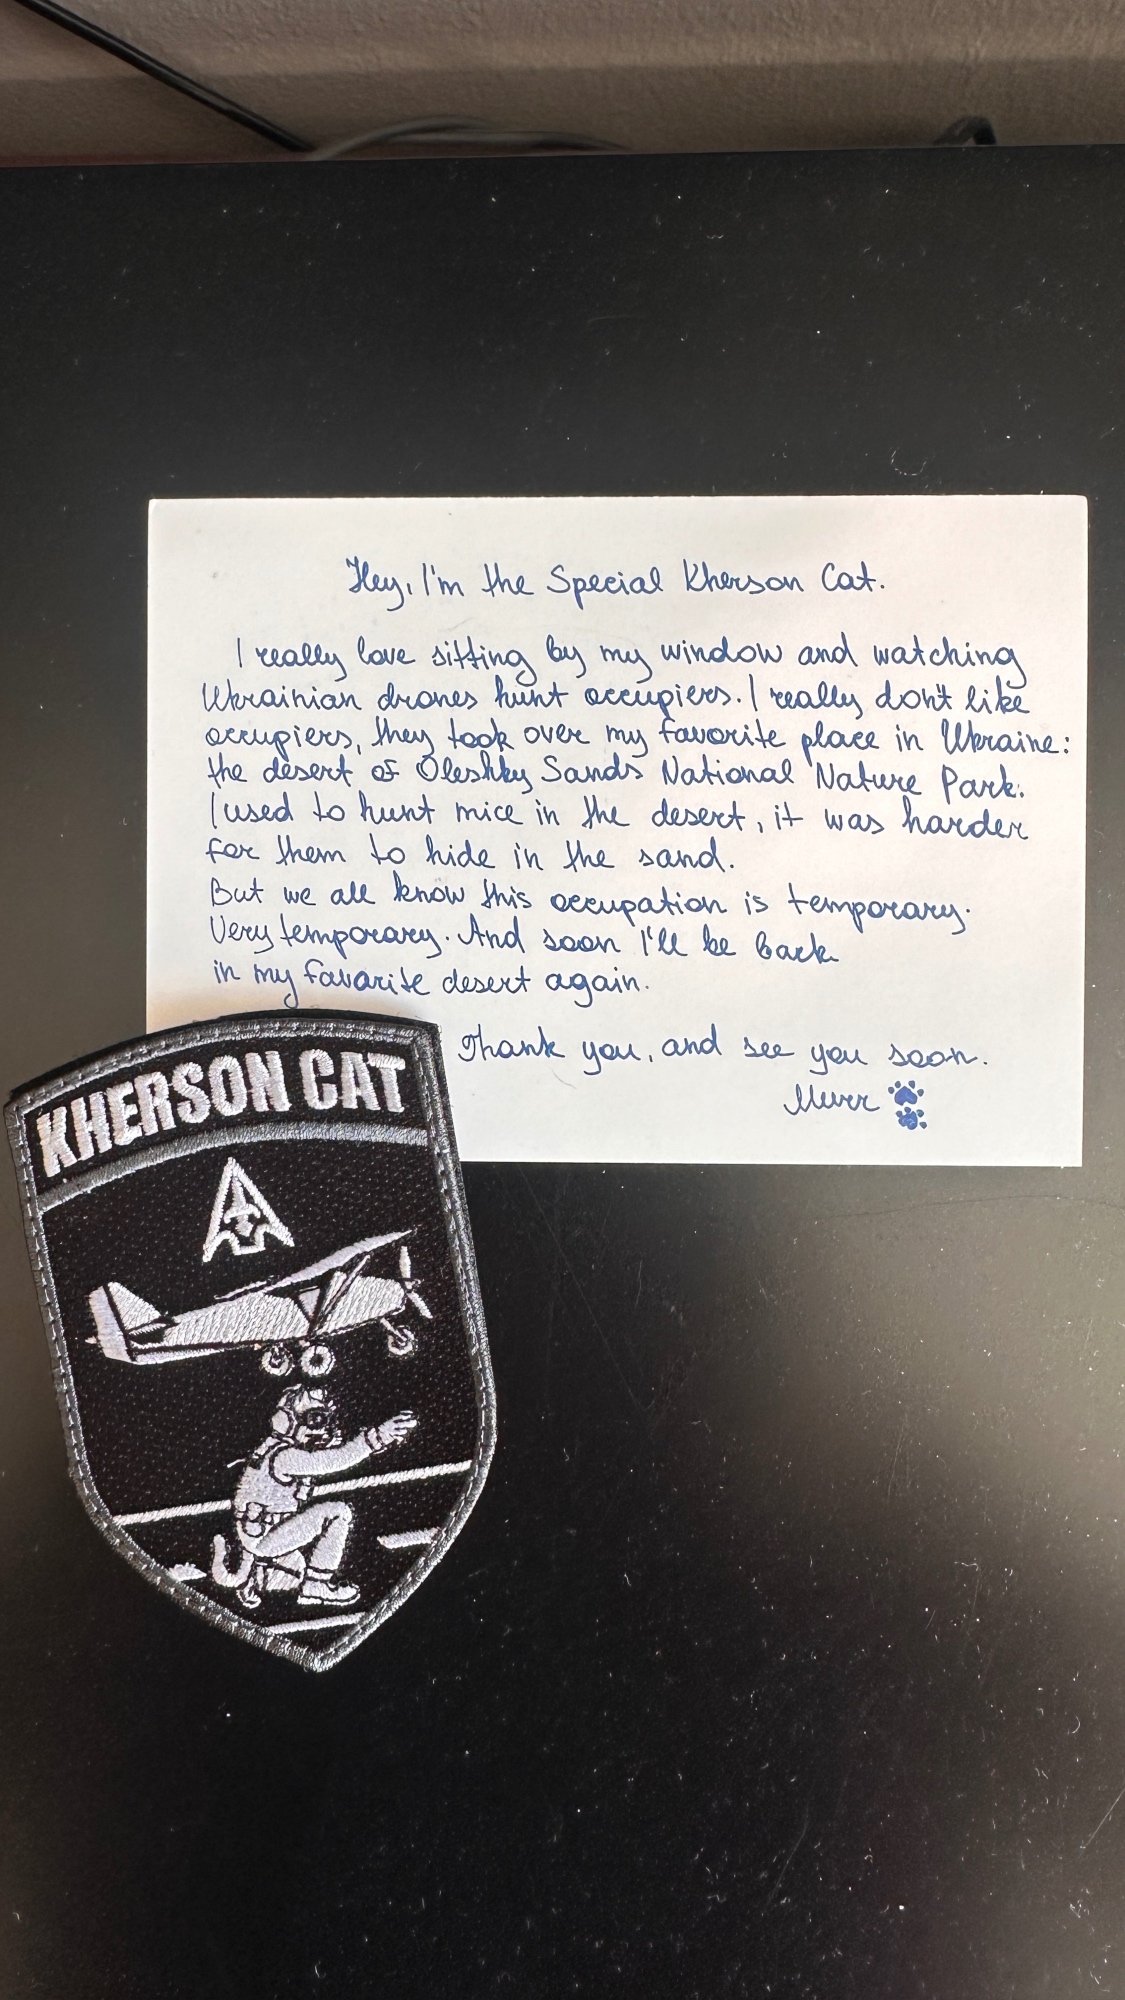 Hey, I'm the Special Kherson Cat.
I really love sitting by my window and watching
Ukrainian drones hunt occupiers. I really don't like
occupiers, they took over my favorite place in Ukraine:
the desert of Oleshky Sands National Nature Park.
I used to hunt mice in the desert, it was harder
for them to hide in the sand.
But we all know this occupation is temporary.
Very temporary. And soon I'll be back
in my favorite desert again.
Thank you, and see you soon.
Murr
KHERSON CAT